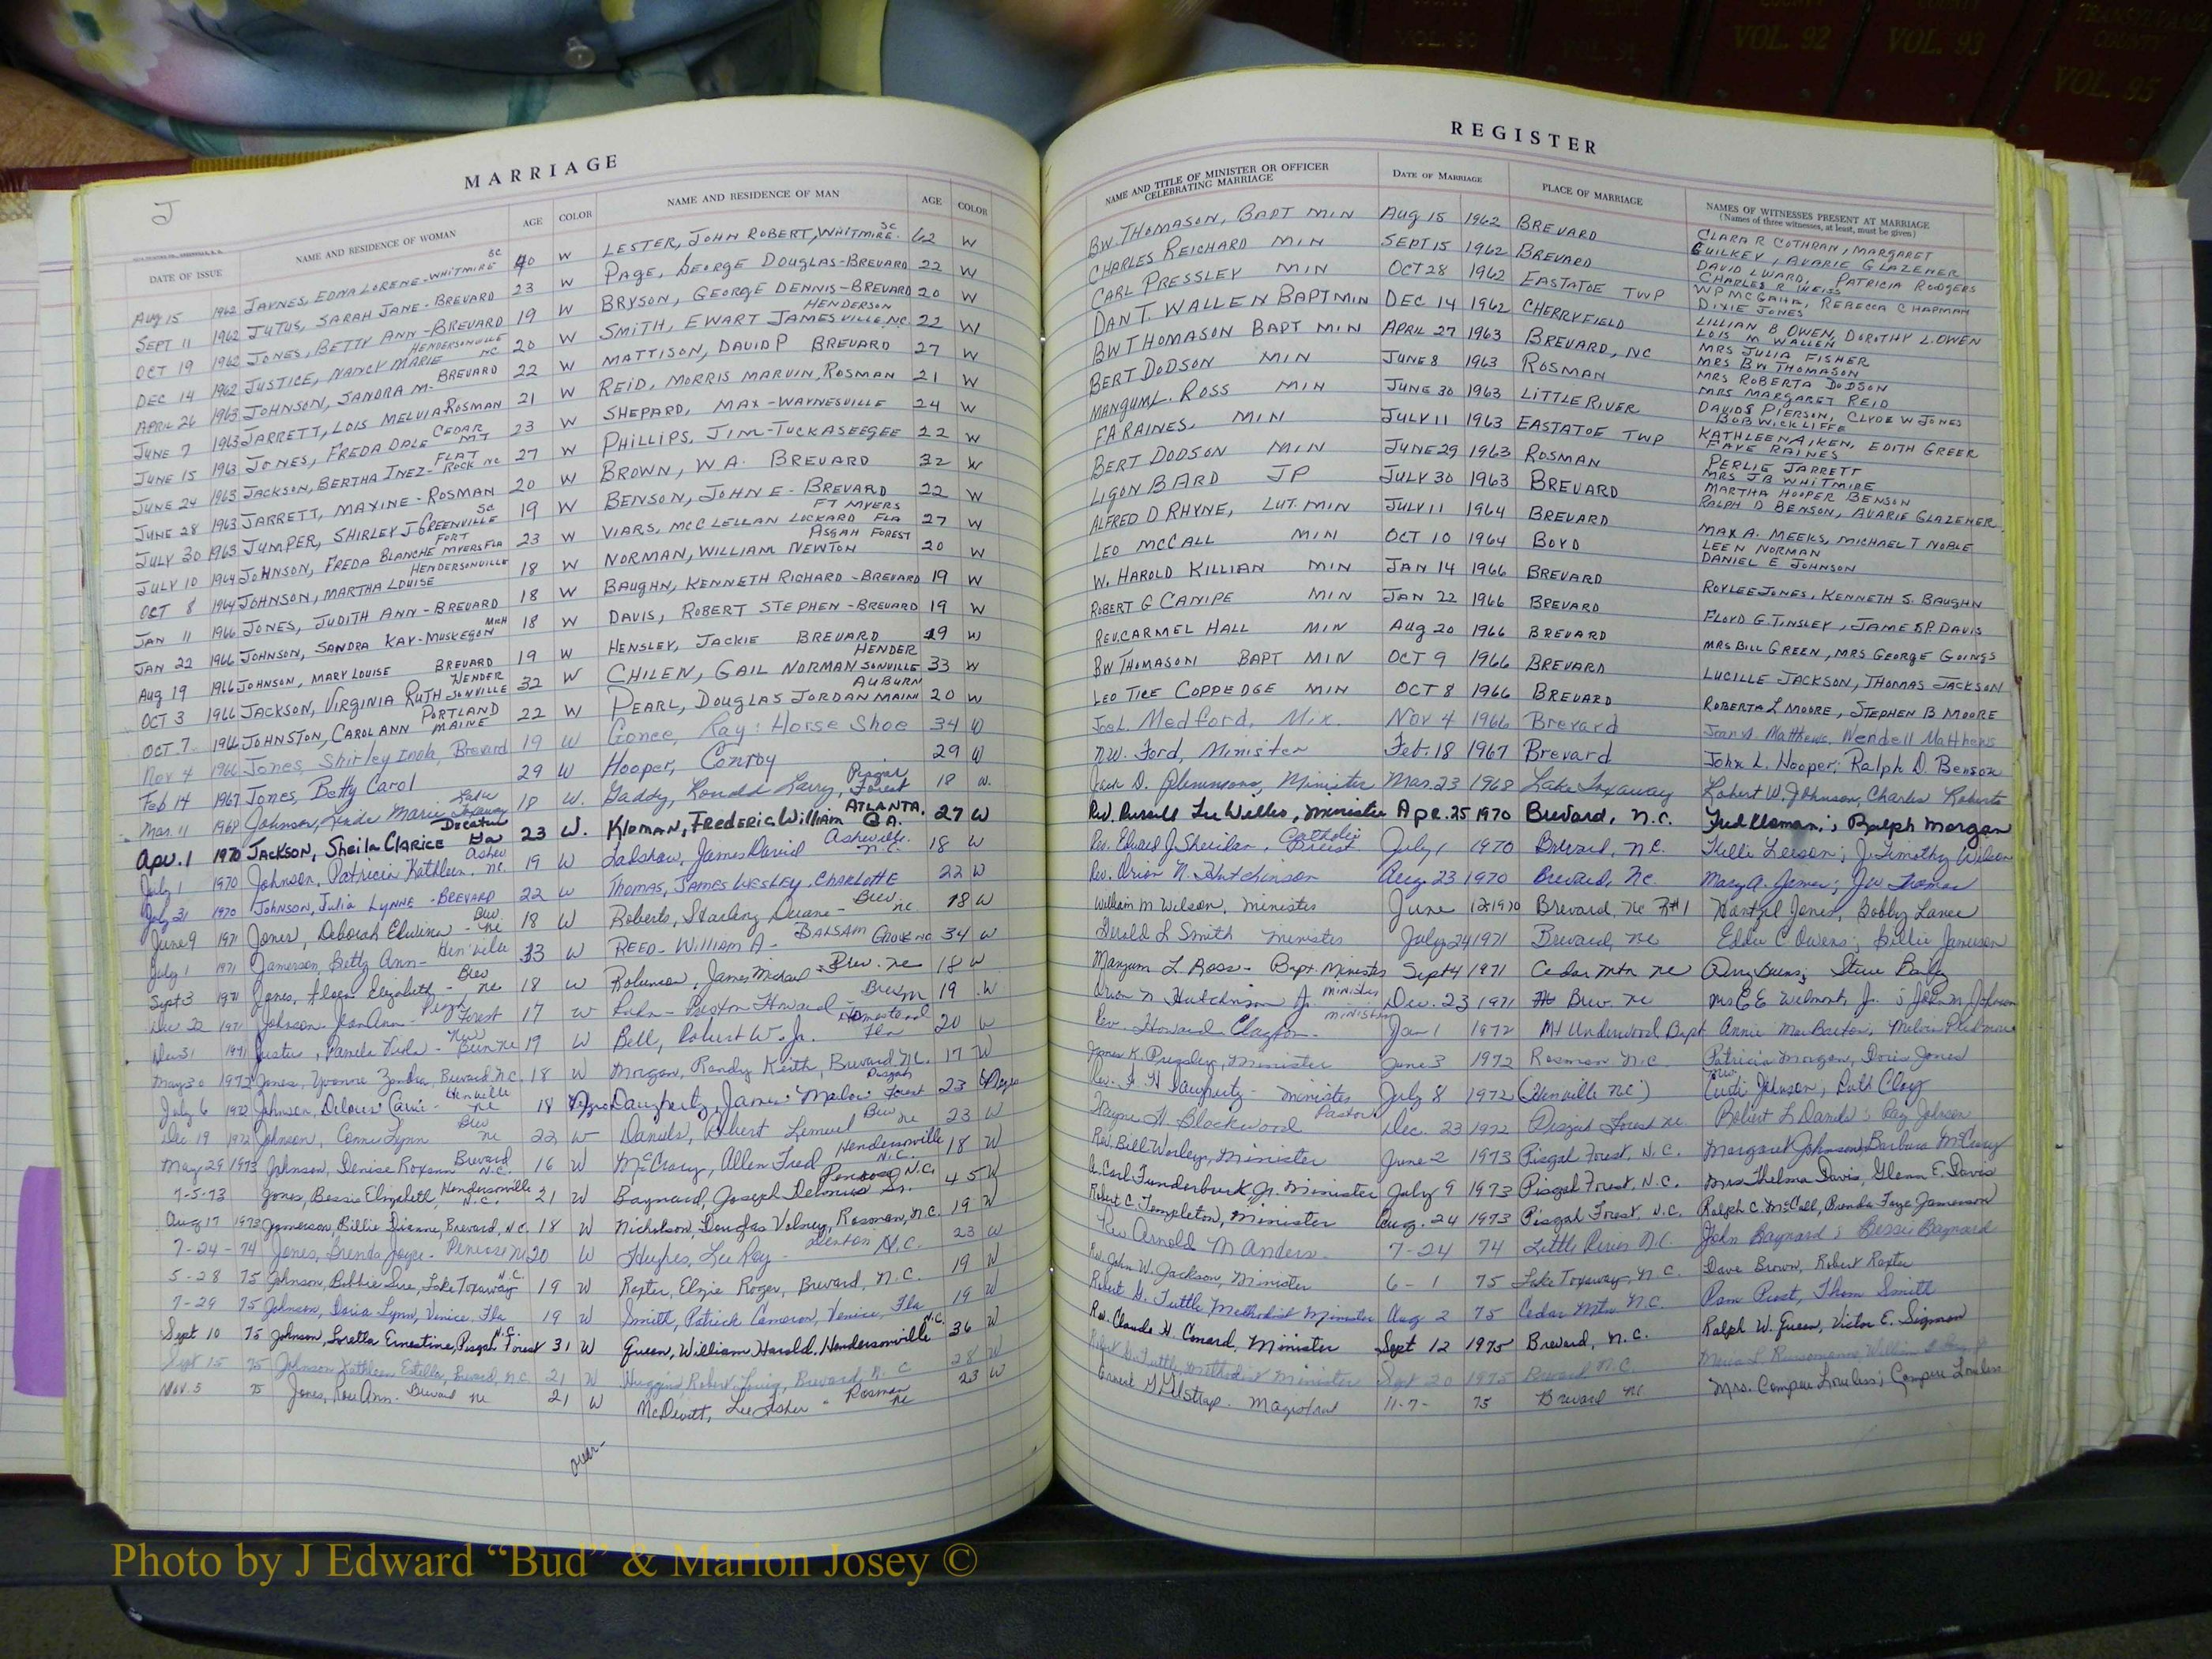 VOL. 92
VOL. 93
TRANSYLVANIA
COUNTY
VOL. 95
MARRIAGE
REGISTER
J
DATE OF ISSUE NAME AND RESIDENCE OF WOMAN AGE COLOR NAME AND RESIDENCE OF MAN AGE COLOR
NAME AND TITLE OF MINISTER OR OFFICER CELEBRATING MARRIAGE DATE OF MARRIAGE PLACE OF MARRIAGE NAMES OF WITNESSES PRESENT AT MARRIAGE
(Names of three witnesses, at least, must be given)
Aug 15 1962 JAYNES, EDNA LORENE - WHITMIRE SC 40 W LESTER, JOHN ROBERT, WHITMIRE SC 62 W
SEPT 11 1962 JUTUS, SARAH JANE - BREVARD 23 W PAGE, GEORGE DOUGLAS - BREVARD 22 W
OCT 19 1962 JONES, BETTY ANN - BREVARD 19 W BRYSON, GEORGE DENNIS - BREVARD 20 W
DEC 14 1962 JUSTICE, NANCY MARIE HENDERSONVILLE NC 20 W SMITH, EWART JAMES HENDERSONVILLE, NC 22 W
APRIL 26 1963 JOHNSON, SANDRA M. BREVARD 22 W MATTISON, DAVID P BREVARD 27 W
JUNE 7 1963 JARRETT, LOIS MELVIA ROSMAN 21 W REID, MORRIS MARVIN, ROSMAN 21 W
JUNE 15 1963 JONES, FREDA DALE CEDAR MT 23 W SHEPARD, MAX - WAYNESVILLE 24 W
JUNE 24 1963 JACKSON, BERTHA INEZ - FLAT ROCK NC 27 W PHILLIPS, JIM - TUCKASEEGEE 22 W
JUNE 28 1963 JARRETT, MAXINE - ROSMAN 20 W BROWN, W.A. BREVARD 32 W
JULY 30 1963 JUMPER, SHIRLEY J GREENVILLE SC 19 W BENSON, JOHN E - BREVARD 22 W
JULY 10 1964 JOHNSON, FREDA BLANCHE FORT MYERS FLA 23 W VIARS, MCCLELLAN LOCKARD FT MYERS FLA 27 W
OCT 8 1964 JOHNSON, MARTHA LOUISE HENDERSONVILLE 18 W NORMAN, WILLIAM NEWTON PISGAH FOREST 20 W
JAN 11 1966 JONES, JUDITH ANN - BREVARD 18 W BAUGHN, KENNETH RICHARD - BREVARD 19 W
JAN 22 1966 JOHNSON, SANDRA KAY - MUSKEGON MICH 18 W DAVIS, ROBERT STEPHEN - BREVARD 19 W
Aug 19 1966 JOHNSON, MARY LOUISE BREVARD 19 W HENSLEY, JACKIE BREVARD 29 W
OCT 3 1966 JACKSON, VIRGINIA RUTH HENDERSONVILLE 32 W CHILEN, GAIL NORMAN HENDERSONVILLE 33 W
OCT. 7 1966 JOHNSTON, CAROL ANN PORTLAND MAINE 22 W PEARL, DOUGLAS JORDAN AUBURN MAINE 20 W
Nov 4 1966 Jones, Shirley Inah, Brevard 19 W Gonce, Ray: Horse Shoe 34 W
Feb 14 1967 Jones, Betty Carol 29 W Hooper, Conroy 29 W
Mar. 11 1968 Johnson, Linda Marie Lake Toxaway 18 W. Gaddy, Ronald Larry, Pisgah Forest 18 W.
Apr. 1 1970 JACKSON, Sheila Clarice Decatur Ga 23 W. Kloman, Frederic William ATLANTA, GA. 27 W
July 1 1970 Johnson, Patricia Kathleen, Ashev NC. 19 W Ladshaw, James David Asheville N.C. 18 W
July 31 1970 JOHNSON, Julia LYNNE - BREVARD 22 W THOMAS, JAMES WESLEY, CHARLOTTE 22 W
June 9 1971 Jones, Deborah Edwina - Brev. NC 18 W Roberts, Starling Duane - Brev NC 18 W
July 1 1971 Jamerson, Betty Ann - Hen'ville 33 W REED - William A - BALSAM GROVE NC 34 W
Sept 3 1971 Jones, Elizabeth - Brev NC 18 W Robinson, James Michael - Brev. NC 18 W
Dec 22 1971 Johnson, Jean Ann - Pisgah Forest 17 W Preston Howard - Brev 19 W
Dec 31 1971 Justus, Pamela Viola - 19 W Bell, Robert W. Jr. Homestead Fla 20 W
May 30 1972 Jones, Yvonne Zandra, Brevard N.C. 18 W Morgan, Randy Keith, Brevard N.C. 17 W
July 6 1972 Johnson, Delores Carrie - Henville NC 18 Negro Daugherty, James Melvin Pisgah Forest 23 Negro
Dec 19 1972 Johnson, Connie Lynn Brev NC 22 W Daniels, Robert Lemuel Brev NC 23 W
May 29 1973 Johnson, Denise Roxann Brevard N.C. 16 W McCrary, Allen Fred Hendersonville N.C. 18 W
7-5-73 Jones, Bessie Elizabeth, Hendersonville N.C. 21 W Baynard, Joseph Sr. Penrose, N.C. 45 W
Aug 17 1973 Jamerson, Billie Dianne, Brevard, N.C. 18 W Nicholson, Douglas Volney, Rosman, N.C. 19 W
7-24- 74 Jones, Brenda Joyce - Penrose NC 20 W Hughes, Lee Roy - N.C. 23 W
5-28 75 Johnson, Bobbie Sue, Lake Toxaway N.C. 19 W Raxter, Elzie Roger, Brevard, N.C. 19 W
7-29 75 Johnson, Daria Lynn, Venice Fla 19 W Smith, Patrick Cameron, Venice, Fla 19 W
Sept 10 75 Johnson, Loretta Ernestine, Pisgah Forest N.C. 31 W Queen, William Harold, Hendersonville N.C. 36 W
Sept 15 75 Johnson Kathleen Estella, Brevard, N.C 21 W Huggins Robert Craig, Brevard, N.C 28 W
Nov. 5 75 Jones, Rose Ann. Brevard NC 21 W McDevitt, Lee - Rosman NC 23 W
over-
BW. THOMASON, BAPT MIN Aug 15 1962 BREVARD CLARA R COTHRAN, MARGARET GUILKEY, AVARIE GLAZENER
CHARLES REICHARD MIN SEPT 15 1962 BREVARD DAVID L WARD, PATRICIA RODGERS CHARLES R WEISS
CARL PRESSLEY MIN OCT 28 1962 EASTATOE TWP WP MCGAHA, REBECCA CHAPMAN DIXIE JONES
DAN T. WALLEN BAPT MIN DEC 14 1962 CHERRYFIELD LILLIAN B OWEN, DOROTHY L. OWEN LOIS M WALLEN
BW THOMASON BAPT MIN APRIL 27 1963 BREVARD, NC MRS JULIA FISHER MRS BW THOMASON
BERT DODSON MIN JUNE 8 1963 ROSMAN MRS ROBERTA DODSON MRS MARGARET REID
MANGUM L. ROSS MIN JUNE 30 1963 LITTLE RIVER DAVID S PIERSON, CLYDE W JONES BOB WICKLIFFE
FA RAINES, MIN JULY 11 1963 EASTATOE TWP KATHLEEN AIKEN, EDITH GREER FAYE RAINES
BERT DODSON MIN JUNE 29 1963 ROSMAN PERLIE JARRETT MRS JB WHITMIRE
LIGON BARD JP JULY 30 1963 BREVARD MARTHA HOOPER BENSON RALPH D BENSON, AVARIE GLAZENER
ALFRED D RHYNE, LUT. MIN JULY 11 1964 BREVARD MAX A. MEEKS, MICHAEL T NOBLE
LEO MCCALL MIN OCT 10 1964 BOYD LEEN NORMAN DANIEL E JOHNSON
W. HAROLD KILLIAN MIN JAN 14 1966 BREVARD ROYLEE JONES, KENNETH S. BAUGHN
ROBERT G CANIPE MIN JAN 22 1966 BREVARD FLOYD G. TINSLEY, JAMES P. DAVIS
REV. CARMEL HALL MIN Aug 20 1966 BREVARD MRS BILL GREEN, MRS GEORGE GOINGS
BW THOMASON BAPT MIN OCT 9 1966 BREVARD LUCILLE JACKSON, THOMAS JACKSON
LEO TICE COPPEDGE MIN OCT 8 1966 BREVARD ROBERTA L MOORE, STEPHEN B MOORE
Joe L. Medford, Min. Nov 4 1966 Brevard Jean S. Matthews, Wendell Matthews
N.W. Ford, Minister Feb. 18 1967 Brevard John L. Hooper; Ralph D. Benson
Jack D. Minister Mar. 23 1968 Lake Toxaway Robert W. Johnson, Charles Roberts
Rev. Russell Lee Willis, Minister Apr. 25 1970 Brevard, N.C. Fred Kloman; Ralph Morgan
Rev. Edward J. Sheridan, Catholic Priest July 1 1970 Brevard, NC. Leeson; J. Timothy Wilson
Rev. Orion N. Hutchinson Aug 23 1970 Brevard, NC. Mary A. James; JW Thomas
William M Wilson, Minister June 12 1970 Brevard, NC Rt 1 Jones, Bobby Lance
Gerald L Smith Minister July 24 1971 Brevard, NC Eddie C. Owens; Billie Jamerson
Mangum L. Ross - Bapt. Minister Sept 4 1971 Cedar Mtn NC Steve Bailey
Orion N Hutchinson Jr. Minister Dec. 23 1971 Brev. NC Mrs C E Jr.; John M Johnson
Rev. Howard Clayton - minister Jan 1 1972 Mt Underwood Bapt Annie Mae Barton, Melvin
James K. Presley, Minister June 3 1972 Rosman N.C Patricia Morgan, Doris Jones
Rev. Daugherty - minister July 8 1972 (Henville NC) Mrs Johnson; Ruth Clay
Wayne H. Blackwood Pastor Dec. 23 1972 Pisgah Forest NC. Robert L Daniels; Johnson
Rev. Bill Worley, Minister June 2 1973 Pisgah Forest, N.C. Margaret Johnson, Barbara McCrary
A. Carl Funderburk Jr. Minister July 9 1973 Pisgah Forest, N.C. Mrs Thelma Davis, Glenn E. Davis
Robert C. Templeton, Minister Aug. 24 1973 Pisgah Forest, N.C. Ralph C. McCall, Brenda Faye Jamerson
Rev Arnold M Anders - 7-24 74 Little River N.C. John Baynard; Bessie Baynard
Rev. John W. Jackson, Minister 6-1 75 Lake Toxaway, N.C. Dave Brown, Robert Raxter
Robert G. Tuttle Methodist Minister Aug 2 75 Cedar Mtn N.C. Pam Thom Smith
Rev. Claude H. Conard, Minister Sept 12 1975 Brevard, N.C. Ralph W. Queen, Victor E. Sigmon
Robert G. Tuttle, Methodist Minister Sept 20 1975 Brevard N.C. William
Magistrate 11-7- 75 Brevard NC. Mrs. Compere Loveless; Compere Loveless
Photo by J Edward “Bud” & Marion Josey ©